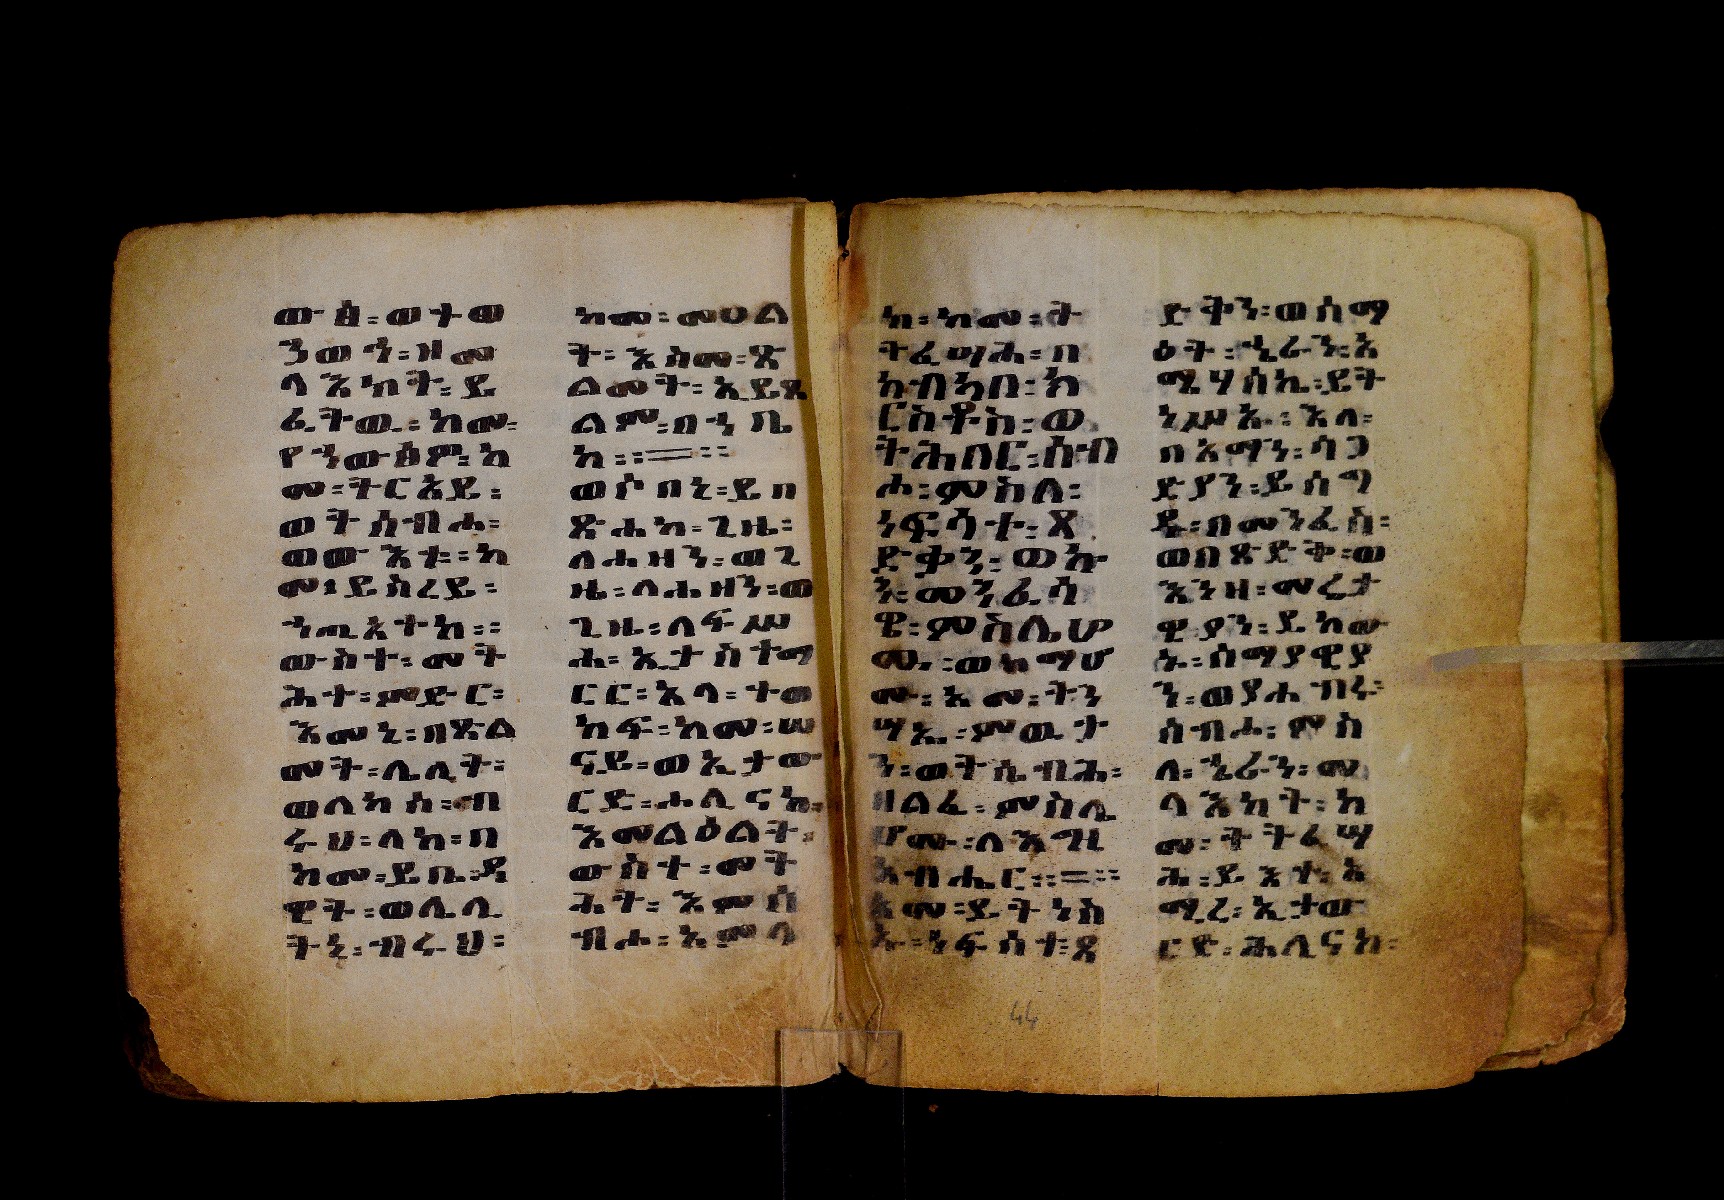 ውፅ፡ወተወ
ንወግ፡ዘመ
ላእክት፡ይ
ፌትው፡ከመ፡
የንውፅም፡ከ
መ፡ትርእይ፡
ወትሰብሐ፡
ወውእቱ፡ከ
መ፡ይስረይ፡
ኀጢአተከ፡፡
ውስተ፡መት
ሕተ፡ምድር፡
እመኒ፡በጽል
መት፡ሌሊት፡
ወለከሰ፡ብ
ሩህ፡ላከ፡በ
ከመ፡ይቤ፡ዳ
ዊት፡ወሌሊ
ትኒ፡ብሩህ፡
ከመ፡መዐል
ት፡እስመ፡ጽ
ልመት፡ኢይጸ
ልም፡በኀቤ
ከ፡፡
ወሶበኒ፡ይበ
ጽሐከ፡ጊዜ፡
ለሐዘን፡ወጊ
ዜ፡ላሐዘን፡ወ
ጊዜ፡ለፍሥ
ሐ፡ኢታስተማ
ርር፡አላ፡ተወ
ከፍ፡ከመ፡ሠ
ናይ፡ወኢታው
ርድ፡ሐሊናከ፡
እመልዕልት፡
ውስተ፡መት
ሕት፡እምሰ
ብሐ፡አምላ
ክ፡ከመ፡ት
ትፌሣሕ፡በ
ኀብኀበ፡ክ
ርስቶስ፡ወ
ትሕበር፡ስብ
ሐ፡ምስለ፡
ነፍሳተ፡ጻ
ድቃን፡ወእ
ኑ፡መንፈሳ
ዊ፡ምስሌሆ
ሙ፡ወከማሆ
ሙ፡እመ፡ትን
ሣእ፡ምዉታ
ን፡ወትሴብሕ፡
ዘልፈ፡ምስሌ
ሆሙ፡ለእግዚ
አብሔር፡፡
እመ፡ይትነስ
እ፡ነፍሰተ፡ጻ
ድቅን፡ወሰማ
ዕት፡ኄራን፡አ
ሜሃሰኬ፡ይት
ነሥኡ፡እለ፡
በአማን፡ሳጋ
ድያን፡ይሰግ
ዱ፡በመንፈስ፡
ወበጽድቅ፡ወ
እንዘ፡መሬታ
ዊያን፡ይከው
ኑ፡ሰማያዊያ
ን፡ወያሐብሩ፡
ሰብሐ፡ምስ
ለ፡ኄራን፡መ
ላእክት፡ከ
መ፡ትትፌሣ
ሕ፡ይእተ፡አ
ሚረ፡ኢታው
ርድ፡ሕሊናከ፡
44